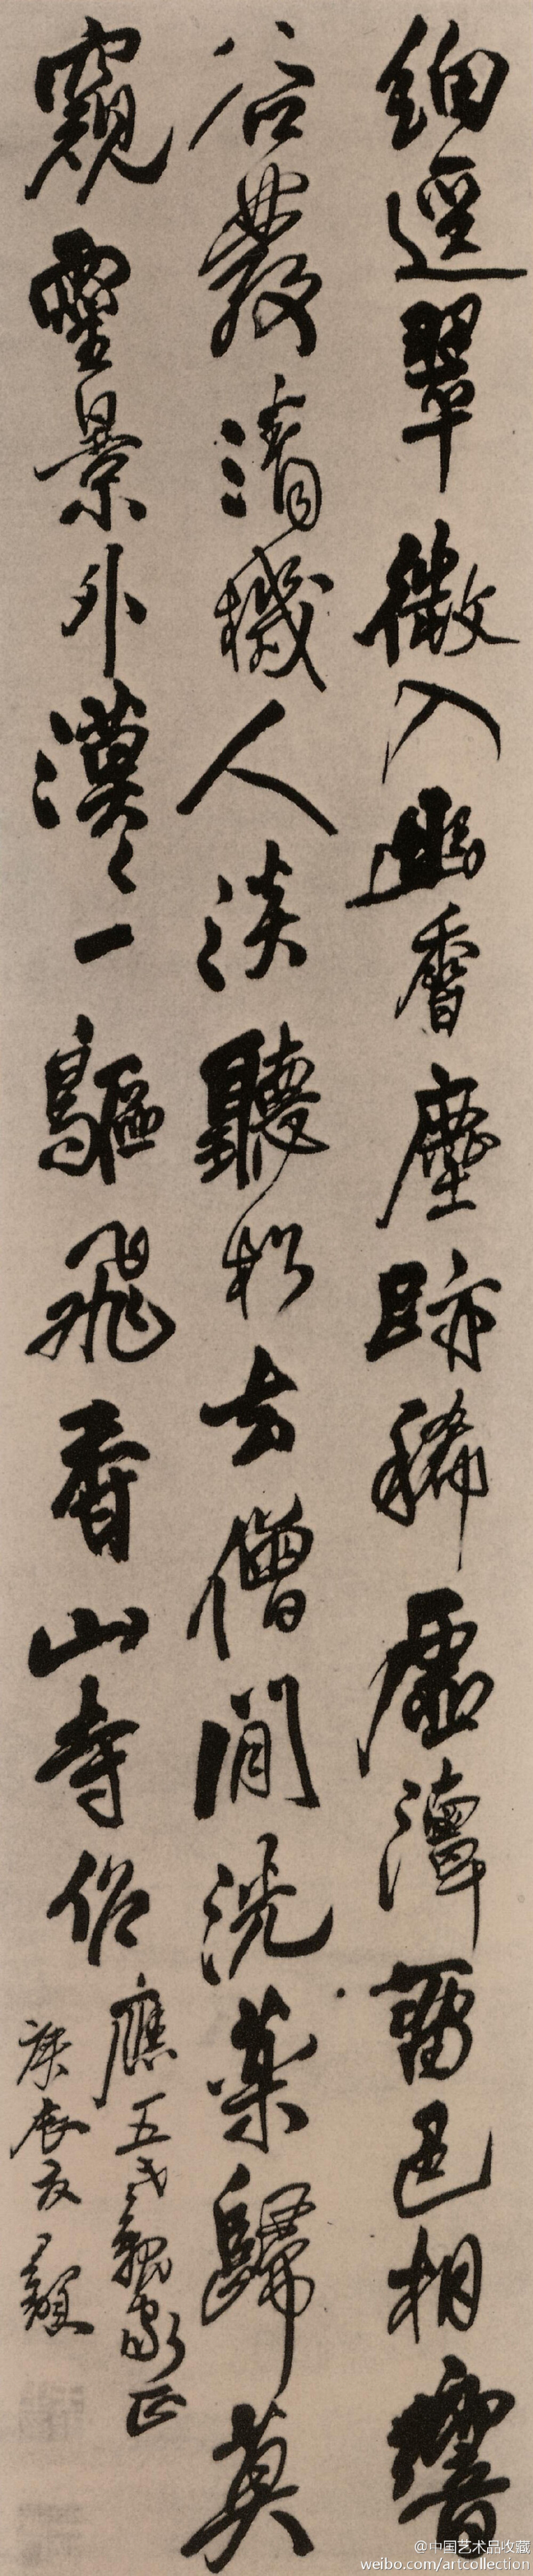 細逕翠微入幽香塵跡稀虛潭留色相響
谷發清機人淡聽松去僧閒洗藥歸莫
窺靈景外漠々一鷗飛香山寺作
應五親家正
庚辰
@中国艺术品收藏
weibo.com/artcollection